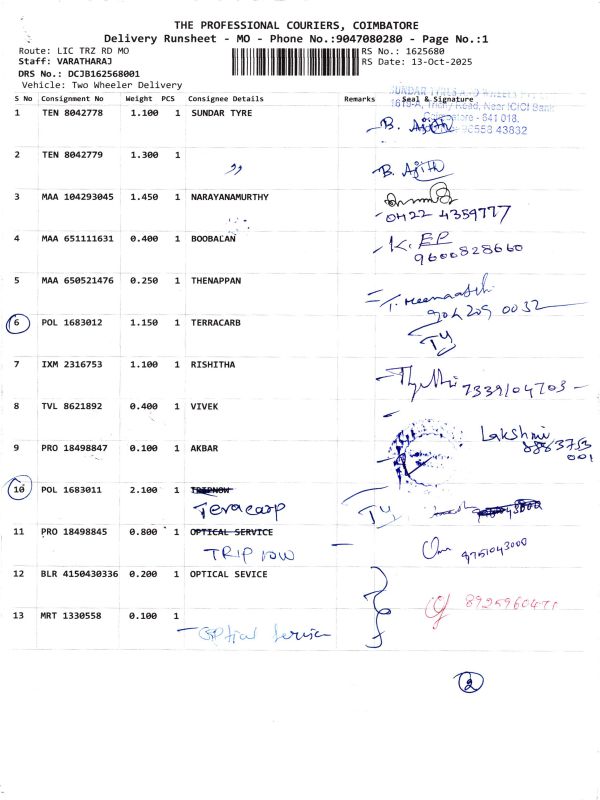 THE PROFESSIONAL COURIERS, COIMBATORE
Delivery Runsheet - MO - Phone No.:9047080280 - Page No.:1
Route: LIC TRZ RD MO RS No.: 1625680
Staff: VARATHARAJ RS Date: 13-Oct-2025
DRS No.: DCJB162568001
Vehicle: Two Wheeler Delivery
S No Consignment No Weight PCS Consignee Details Remarks Seal & Signature
1 TEN 8042778 1.100 1 SUNDAR TYRE
1619-A, Trichy Road, Near ICICI Bank
Coimbatore - 641 018.
B. Ajith 98558 43832
2 TEN 8042779 1.300 1 ,, B. Ajith
3 MAA 104293045 1.450 1 NARAYANAMURTHY
0422 4359777
4 MAA 651111631 0.400 1 BOOBALAN K. EP
9600828660
5 MAA 650521476 0.250 1 THENAPPAN T. Meenaatchi
904 209 0032
6 POL 1683012 1.150 1 TERRACARB TY
7 IXM 2316753 1.100 1 RISHITHA 7339104703
8 TVL 8621892 0.400 1 VIVEK
9 PRO 18498847 0.100 1 AKBAR Lakshmi
8883753
001
10 POL 1683011 2.100 1 TRIPNOW
Teracarp TY
11 PRO 18498845 0.800 1 OPTICAL SERVICE
TRIP now 9751043000
12 BLR 4150430336 0.200 1 OPTICAL SEVICE
8925960471
13 MRT 1330558 0.100 1
Optical Service
2